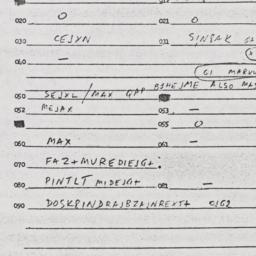 020 O 021 O
030 CEJXN 031 SINBAK
040 —
050 SEJXL / MAX QPP BIHEJME ALSO
052 MEJAX 053 —
055 O
060 MAX 061 —
070 FAZ+MUREDIEJG+:
080 PINTLT MIDEJG+ 081 —
090 DOSKPINDRAJBZAJNREXT+ 0162